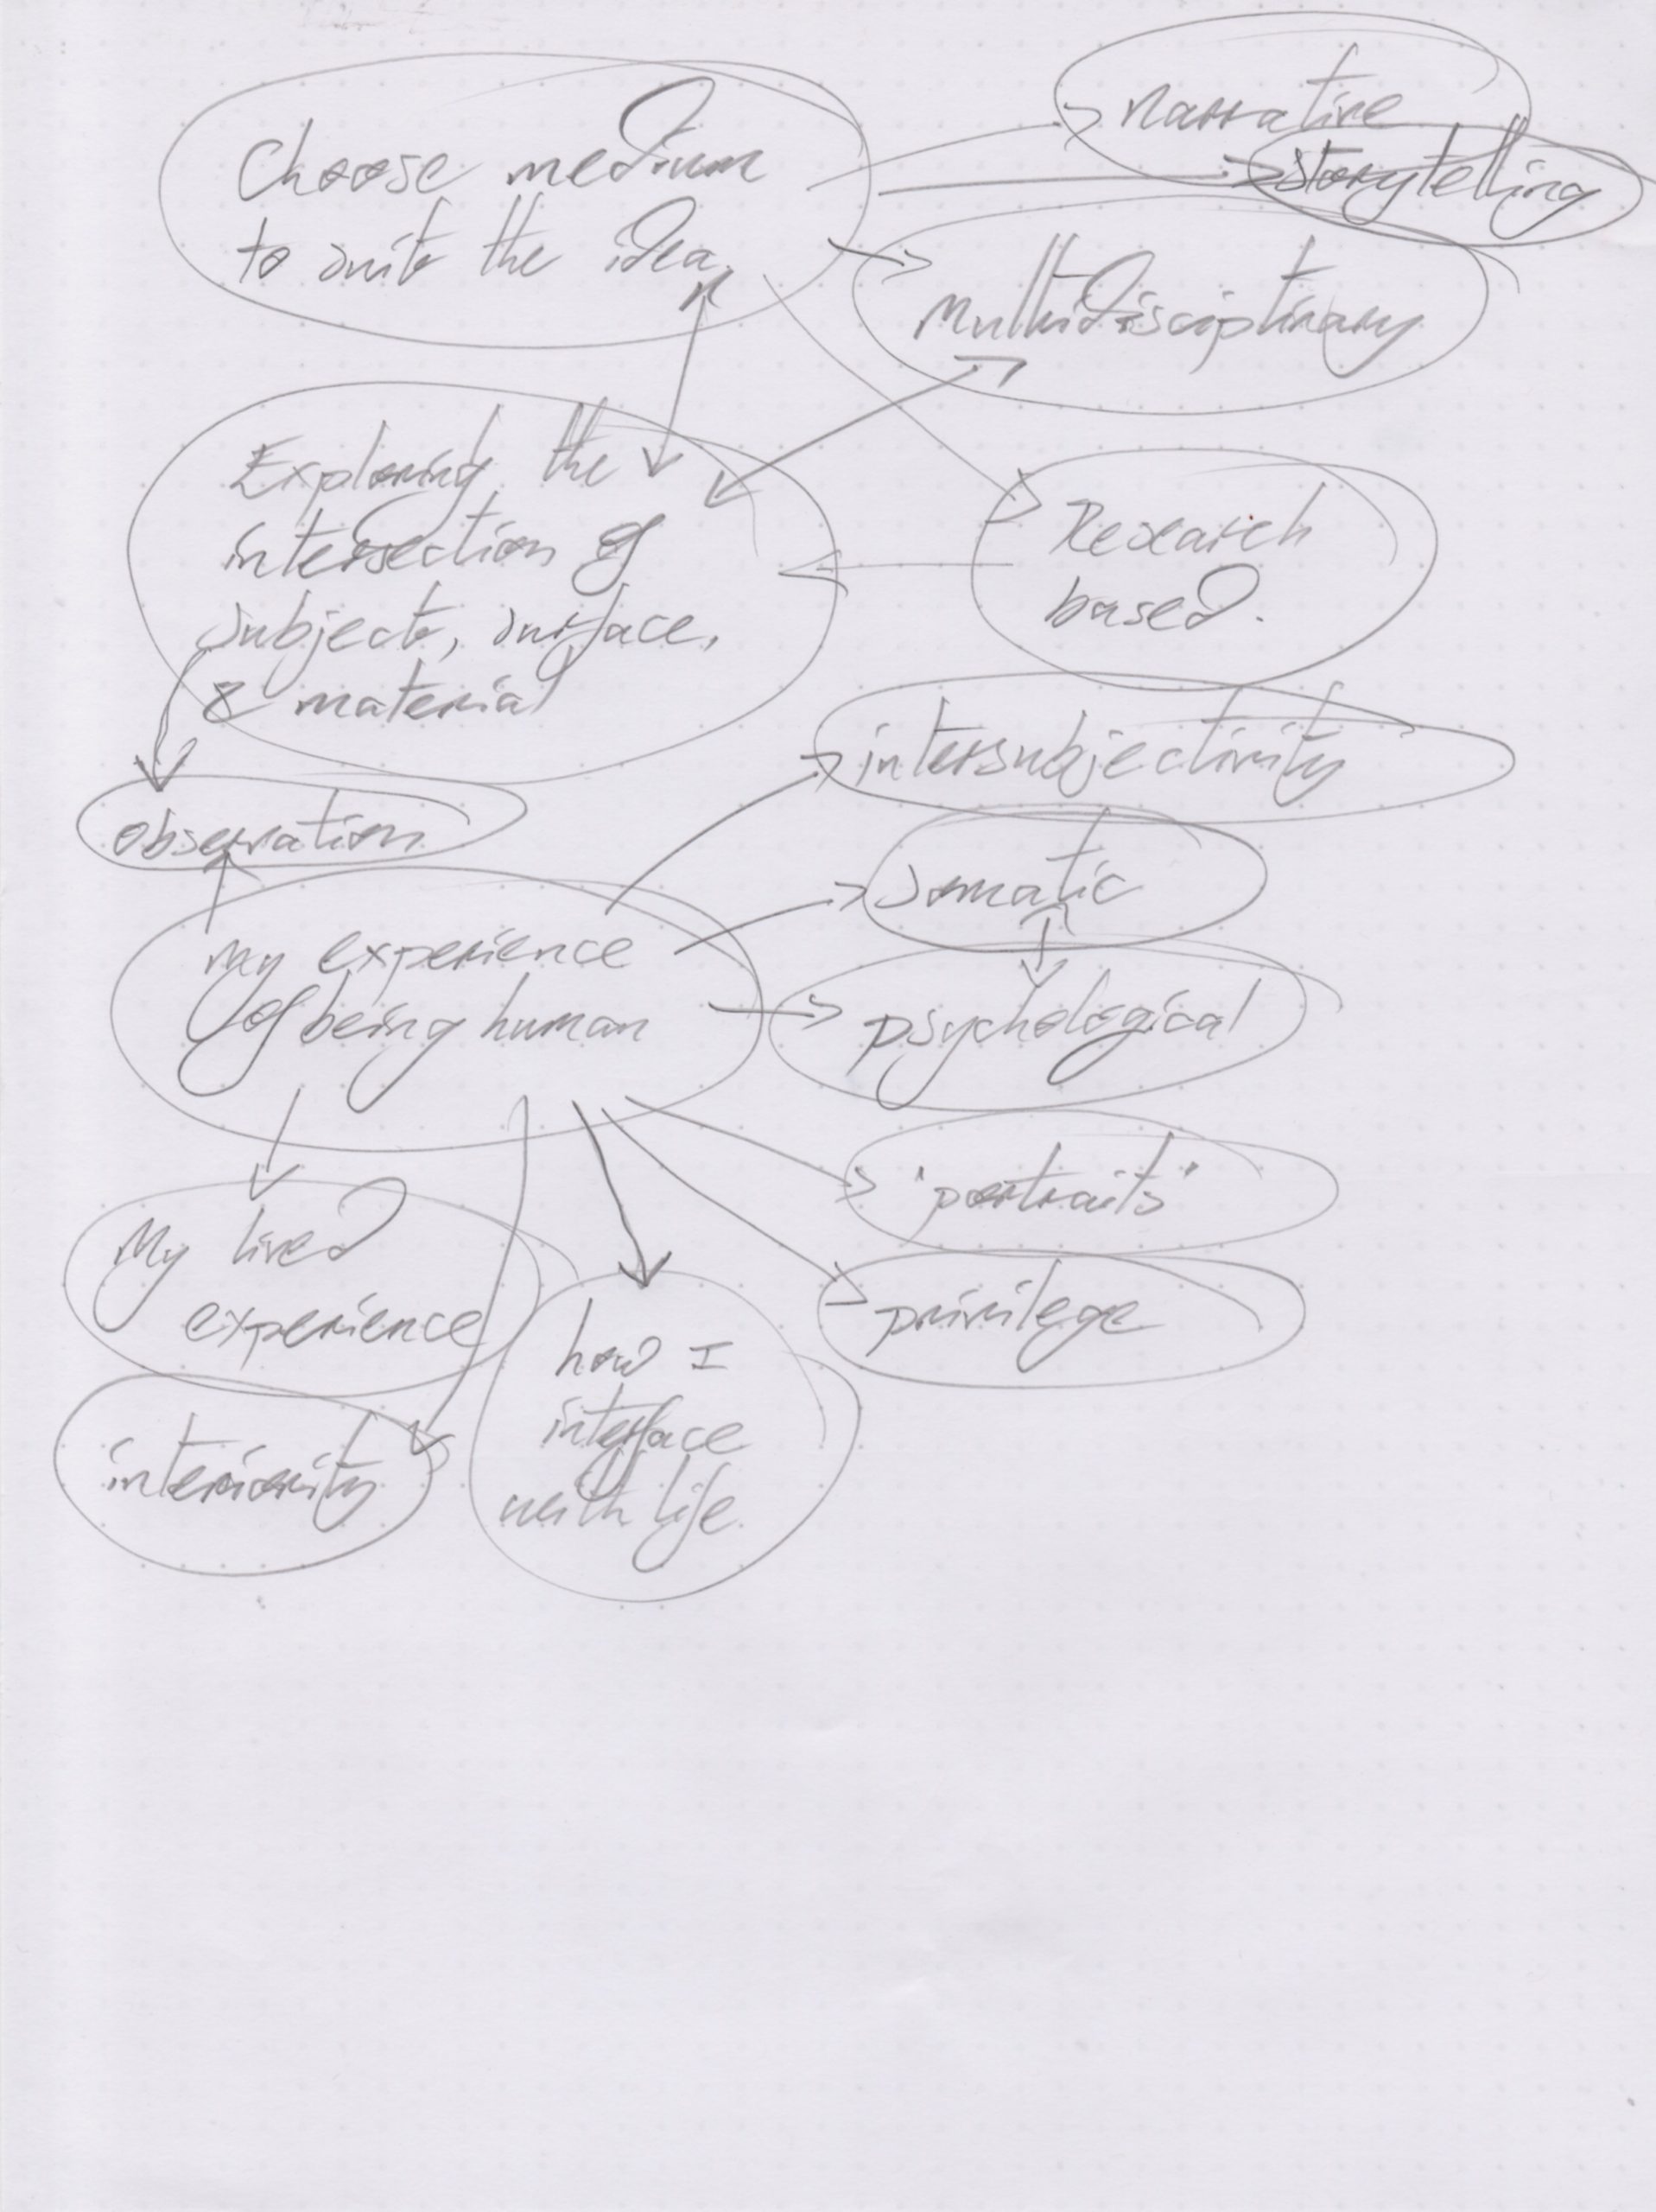 Choose medium
to suit the idea.
narrative
storytelling
multidisciplinary
Exploring the
intersection of
subject, surface,
& material
Research
based.
intersubjectivity
observation
somatic
my experience
of being human
psychological
'portraits'
My lived
experience
privilege
how I
interface
with life.
interiority